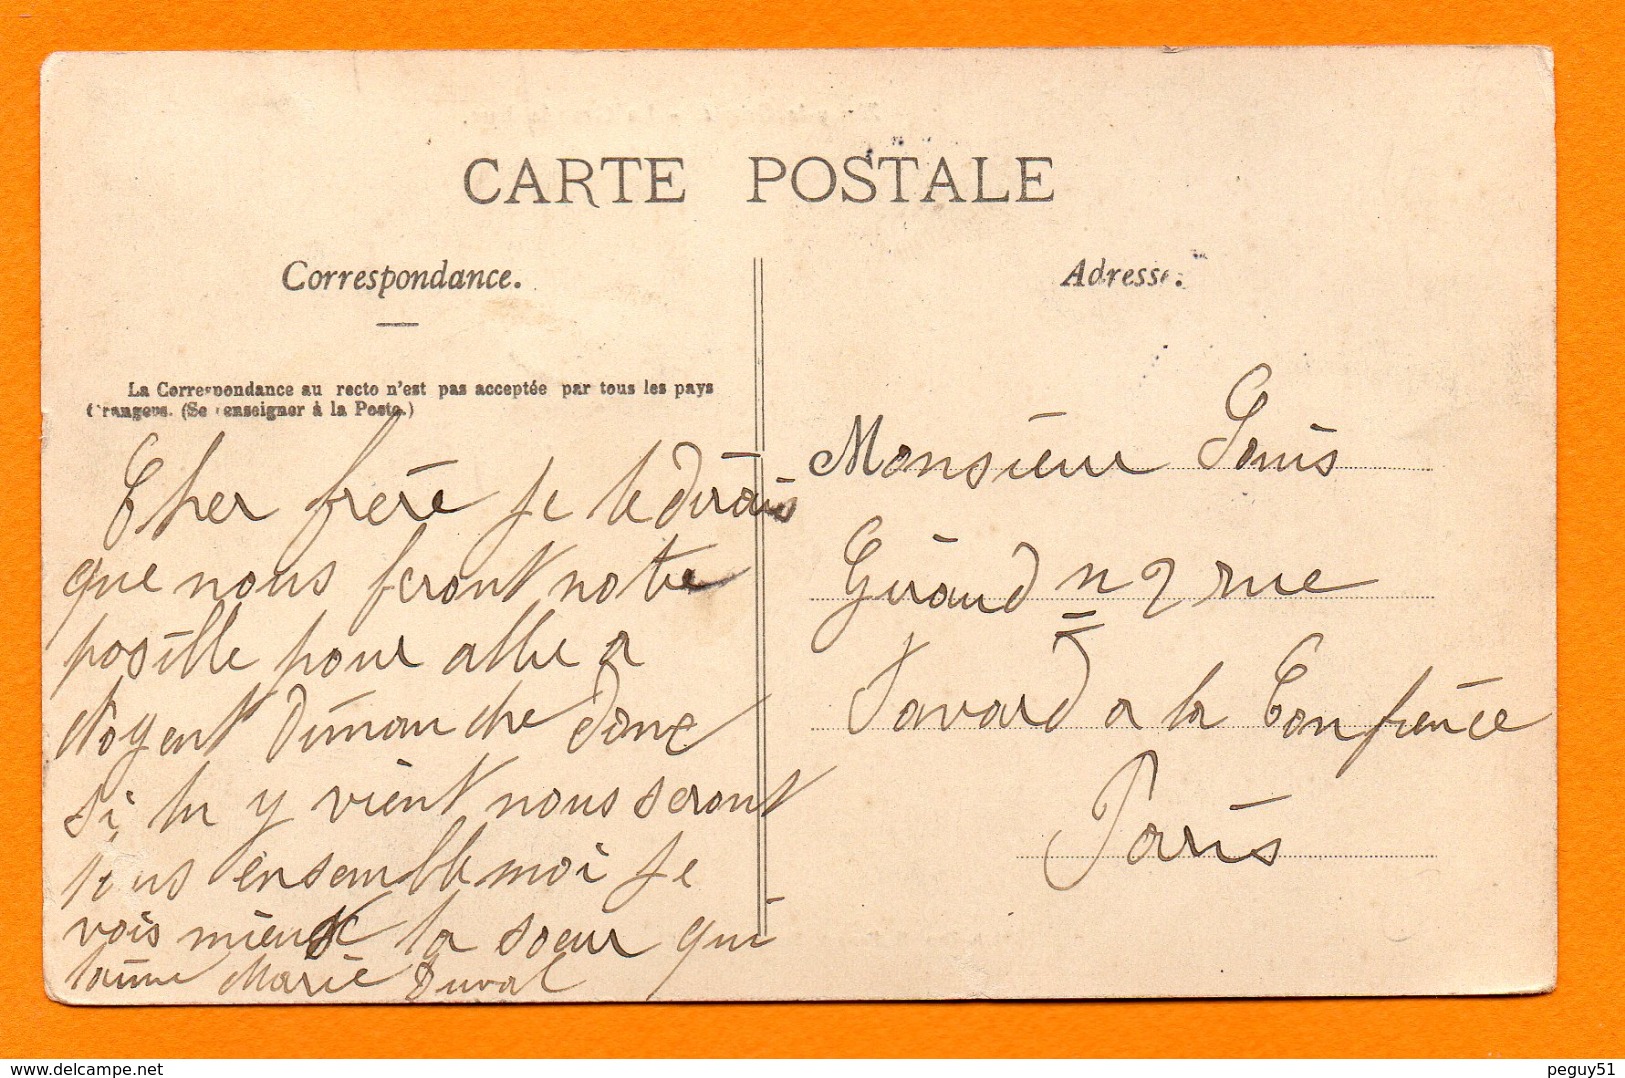 CARTE POSTALE
Correspondance.
Adresse.
La Correspondance au recto n'est pas acceptée par tous les pays
étrangers. (Se renseigner à la Poste.)
Cher frère je te dirais
que nous feront notre
posille pour aller a
Nogent Dimanche donc
si tu y vient nous seront
tous ensemble moi je
vois mieux ta soeur qui
t'aime Marie Duval
Monsieur Louis
Giraud n 2 rue
Favard a la Confience
Paris
peguy51